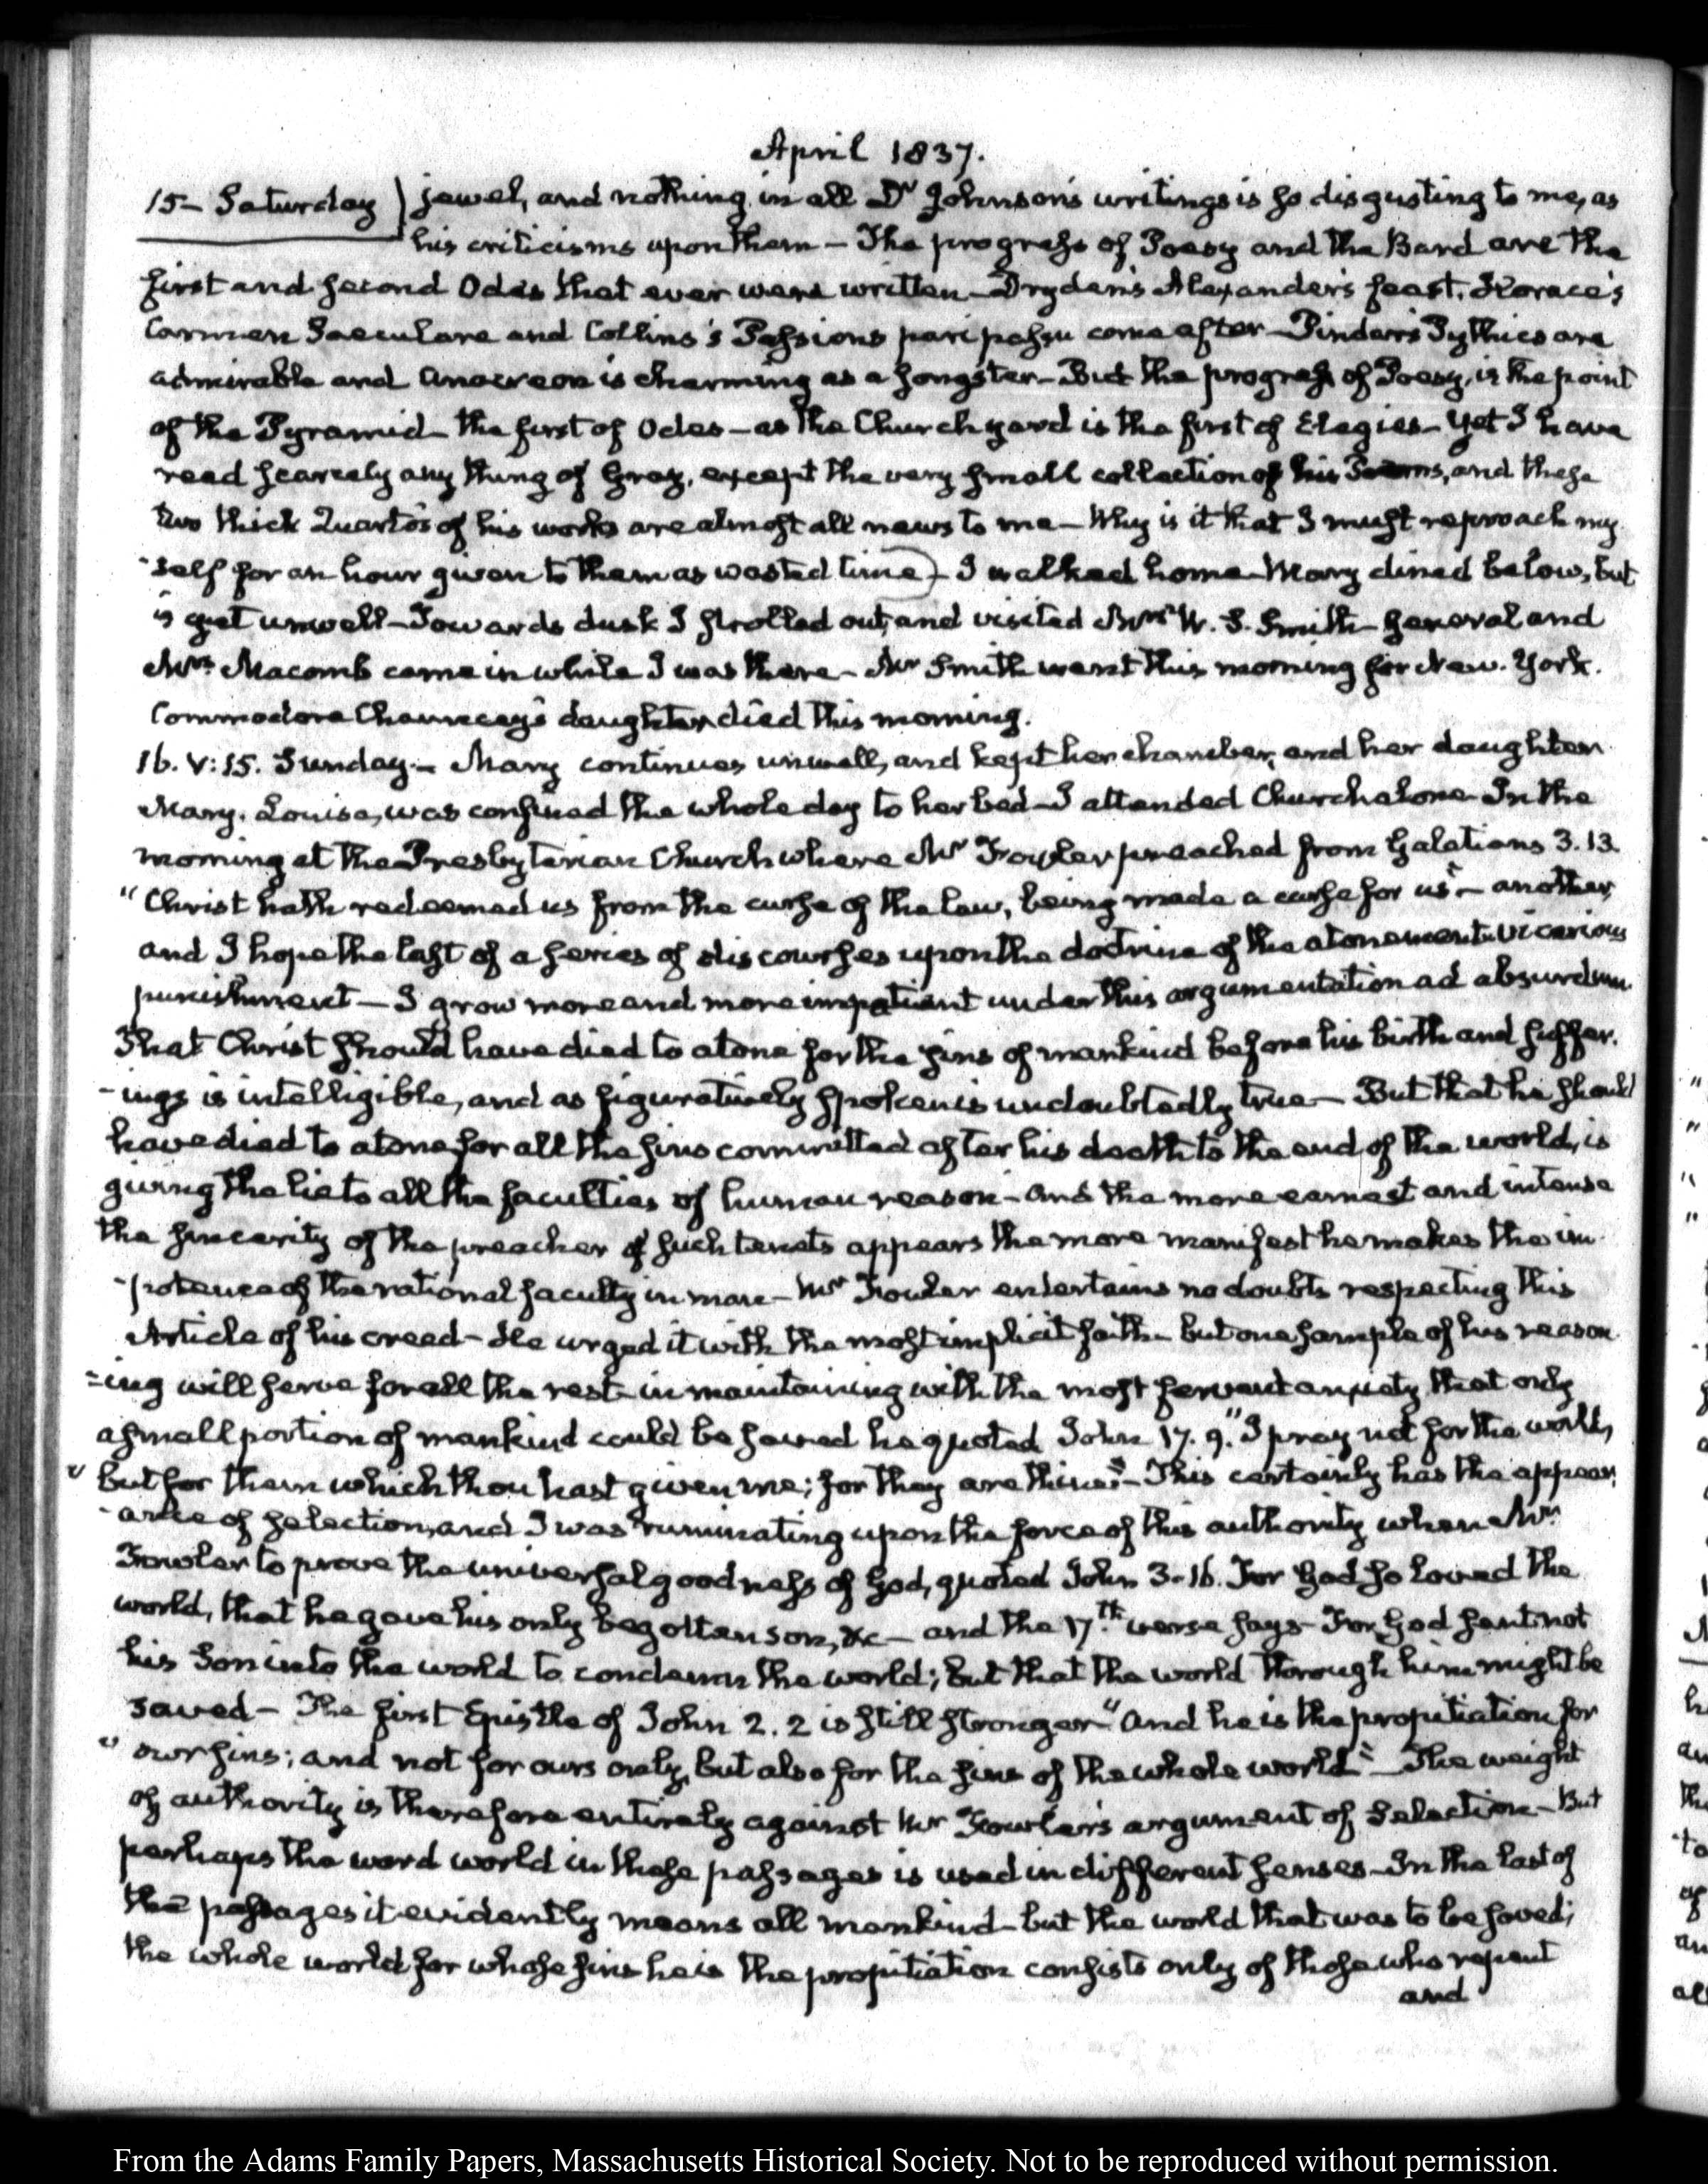 April 1837.
15- Saturday jewel, and nothing in all Dr Johnson's writings is so disgusting to me, as
his criticisms upon them — The progress of Poesy and the Bard are the
first and second Odes that ever were written — Dryden's Alexander's feast. Horace's
Carmen Saeculare and Collins's Passions pari passu come after — Pindar's Pythics are
admirable and Anacreon is charming as a songster — But the progress of Poesy, is the point
of the Pyramid — the first of Odes — as the Church yard is the first of Elegies — Yet I have
read scarcely any thing of Gray, except the very small collection of his Poems, and these
two thick Quarto's of his works are almost all news to me — Why is it that I must reproach my
-self for an hour given to them as wasted time) — I walked home — Mary dined below, but
is yet unwell — Towards dusk I strolled out, and visited Mrs W. S. Smith — General and
Mrs Macomb came in while I was there — Mr Smith went this morning for New-York.
Commodore Chauncey's daughter died this morning.
16. V:15. Sunday — Mary continues unwell, and kept her chamber, and her daughter
Mary-Louisa, was confined the whole day to her bed — I attended Church alone — In the
morning at the Presbyterian Church where Mr Fowler preached from Galations 3.13.
"Christ hath redeemed us from the curse of the law, being made a curse for us" — another,
and I hope the last of a series of discourses upon the doctrine of the atonement. Vicarious
punishment — I grow more and more impatient under this argumentation ad absurdum.
That Christ should have died to atone for the sins of mankind before his birth and suffer-
-ings is intelligible, and as figuratively spoken is undoubtedly true — But that he should
have died to atone for all the sins committed after his death to the end of the world, is
giving the lie to all the faculties of human reason — and the more earnest and intense
the sincerity of the preacher of such tenets appears the more manifest he makes the im-
-potence of the rational faculty in man — Mr Fowler entertains no doubts respecting this
Article of his creed — He urged it with the most implicit faith — but one sample of his reason
=ing will serve for all the rest — in maintaining with the most fervent anxiety that only
a small portion of mankind could be saved he quoted John 17.9. "I pray not for the world,
" but for them which thou hast given me; for they are thine" — This certainly has the appear-
-ance of selection, and I was ruminating upon the force of this authority when Mr
Fowler to prove the universal goodness of God, quoted John 3-16. For God so loved the
world, that he gave his only begotten son, &c — and the 17.th verse says — For God sent not
his Son into the world to condemn the world; but that the world through him might be
saved — The first Epistle of John 2.2 is still stronger "And he is the propitiation for
" our sins; and not for ours only, but also for the sins of the whole world" — The weight
of authority is therefore entirely against Mr Fowler's argument of Selection — But
perhaps the word world in these passages is used in different senses — In the last of
the passages it evidently means all mankind — but the world that was to be saved;
the whole world for whose sins he is the propitiation consists only of those who repent
and
From the Adams Family Papers, Massachusetts Historical Society. Not to be reproduced without permission.